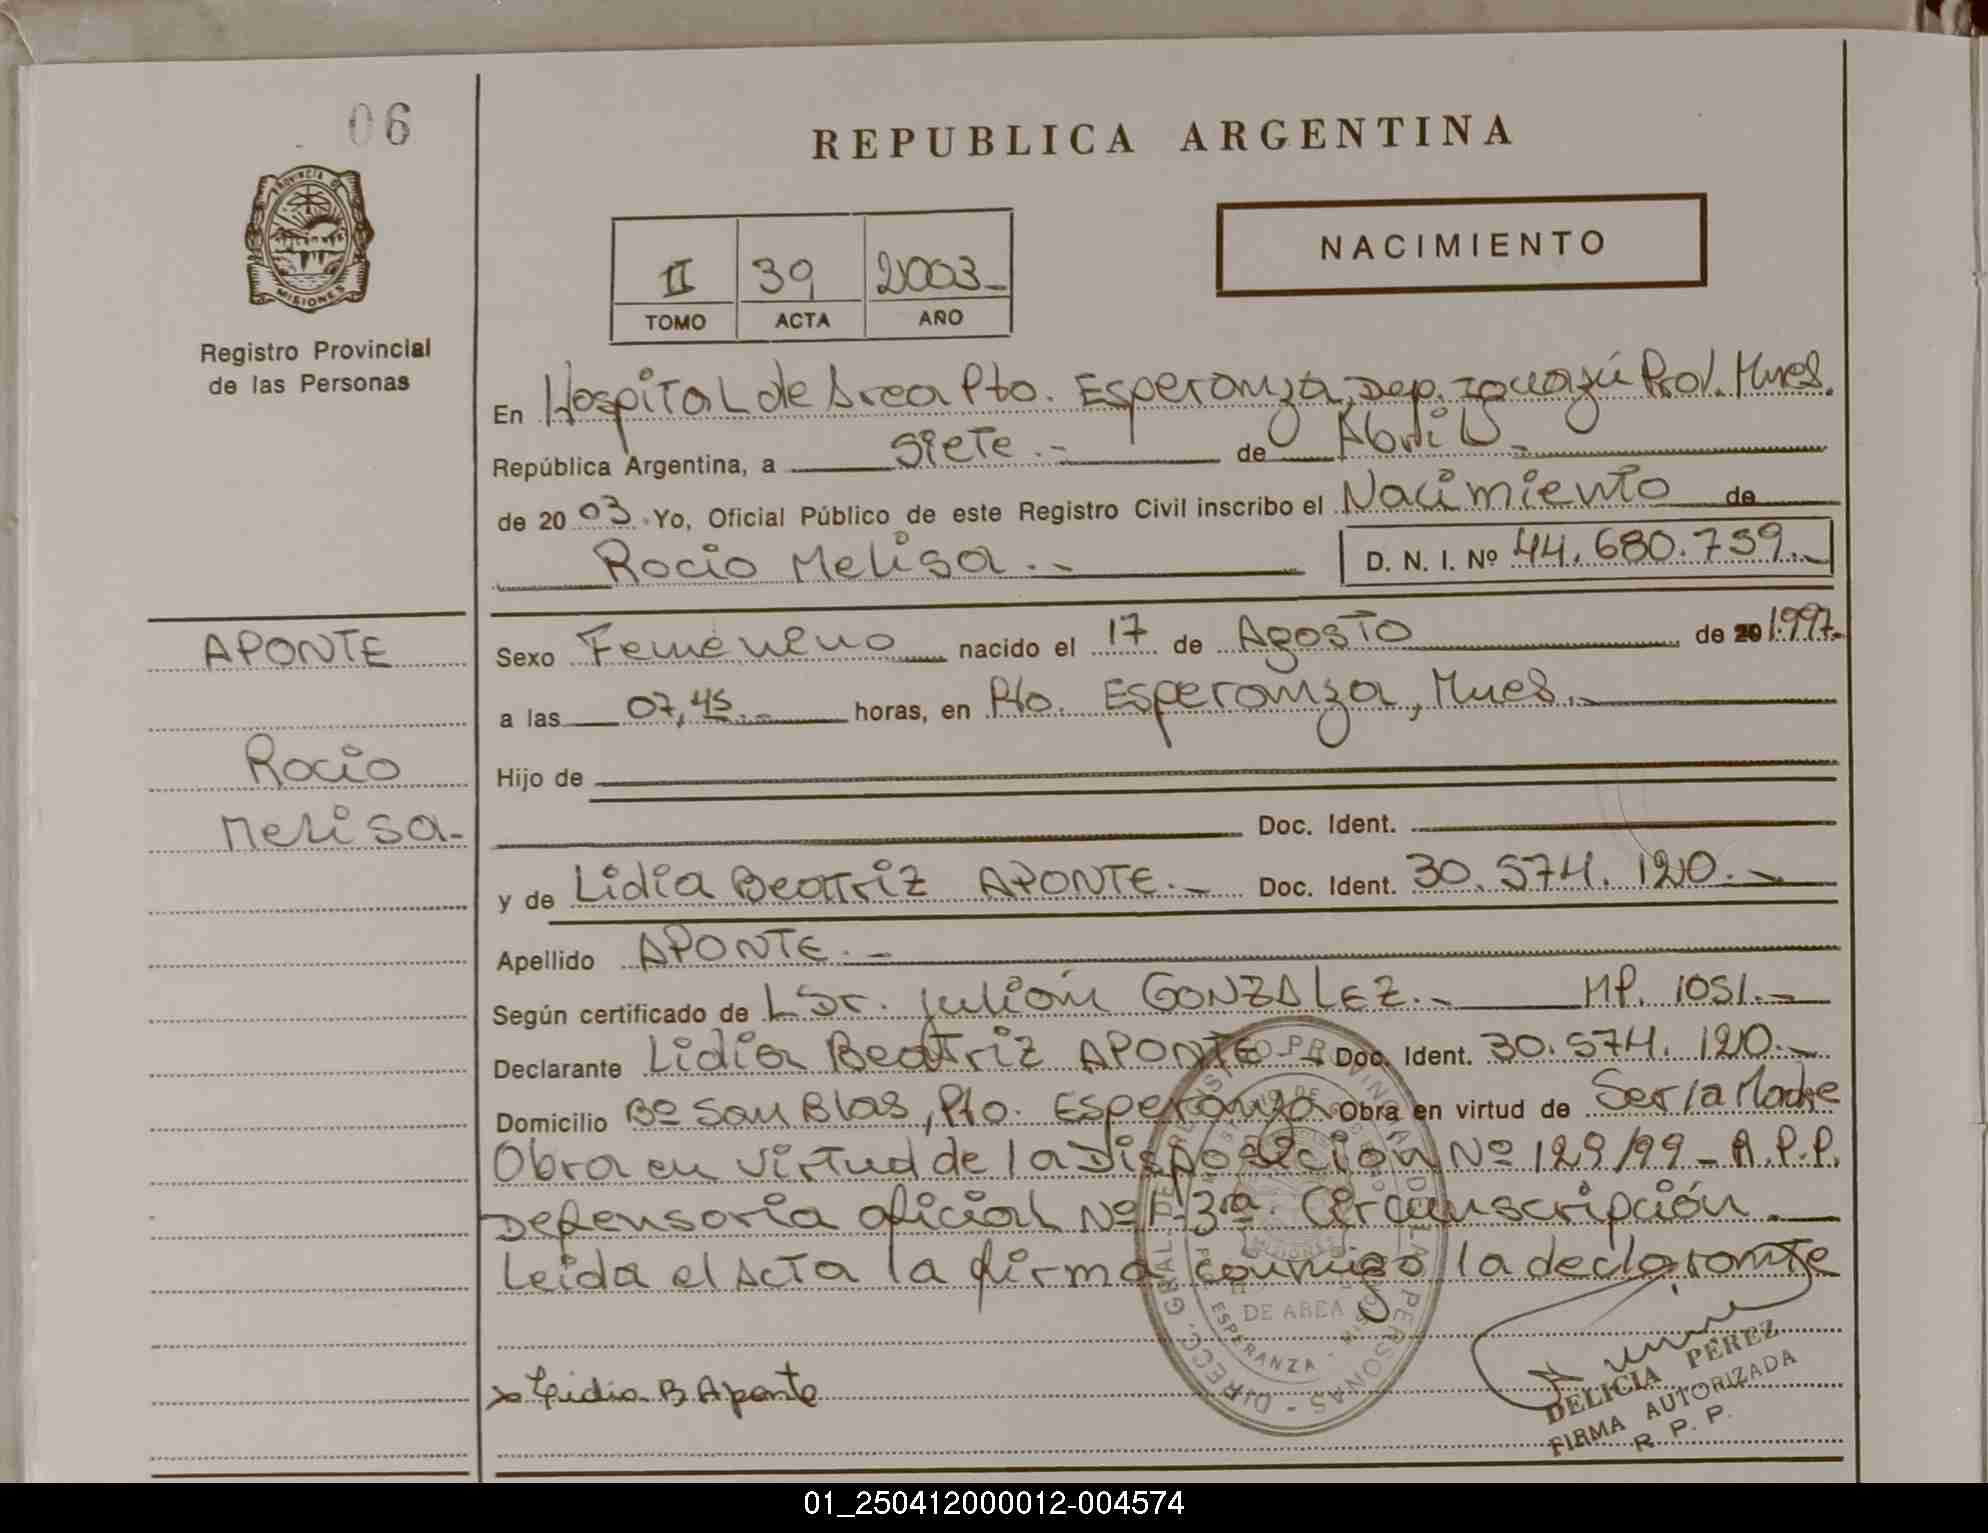 06
REPUBLICA ARGENTINA
PROVINCIA DE
MISIONES
Registro Provincial
de las Personas
II 39 2003_
TOMO ACTA AÑO
NACIMIENTO
En Hospital de Area Pto. Esperanza, Dep. Iguazú Prov. Mnes.
República Argentina, a siete.- de Abril_
de 2003. Yo, Oficial Público de este Registro Civil inscribo el Nacimiento de
Rocio Melisa.- D. N. I. Nº 44.680.759._
APONTE
Rocio
Melisa-
Sexo Femenino nacido el 17 de Agosto de 20 1.997.
a las 07,45.- horas, en Pto. Esperanza, Mnes._
Hijo de
Doc. Ident.
y de Lidia Beatriz APONTE._ Doc. Ident. 30.574.120._
Apellido APONTE._
Según certificado de L Dr. Julián GONZALEZ._ M.P. 1051._
Declarante Lidia Beatriz APONTE_ Doc. Ident. 30.574.120._
Domicilio Bº San Blas, Pto. Esperanza Obra en virtud de Ser la Madre
Obra en virtud de la Disposición Nº 129/99_ A.P.P.
Defensoria oficial Nº 1-3ra. Circunscripción._
Leida el Acta la firma conmigo la declarante
x Lidia B Aponte
DELICIA PEREZ
FIRMA AUTORIZADA
R. P. P.
DIRECC. GRAL. DE REGISTRO PROVINCIAL DE LAS PERSONAS -
DE AREA
ESPERANZA - MISIONES
01_250412000012-004574